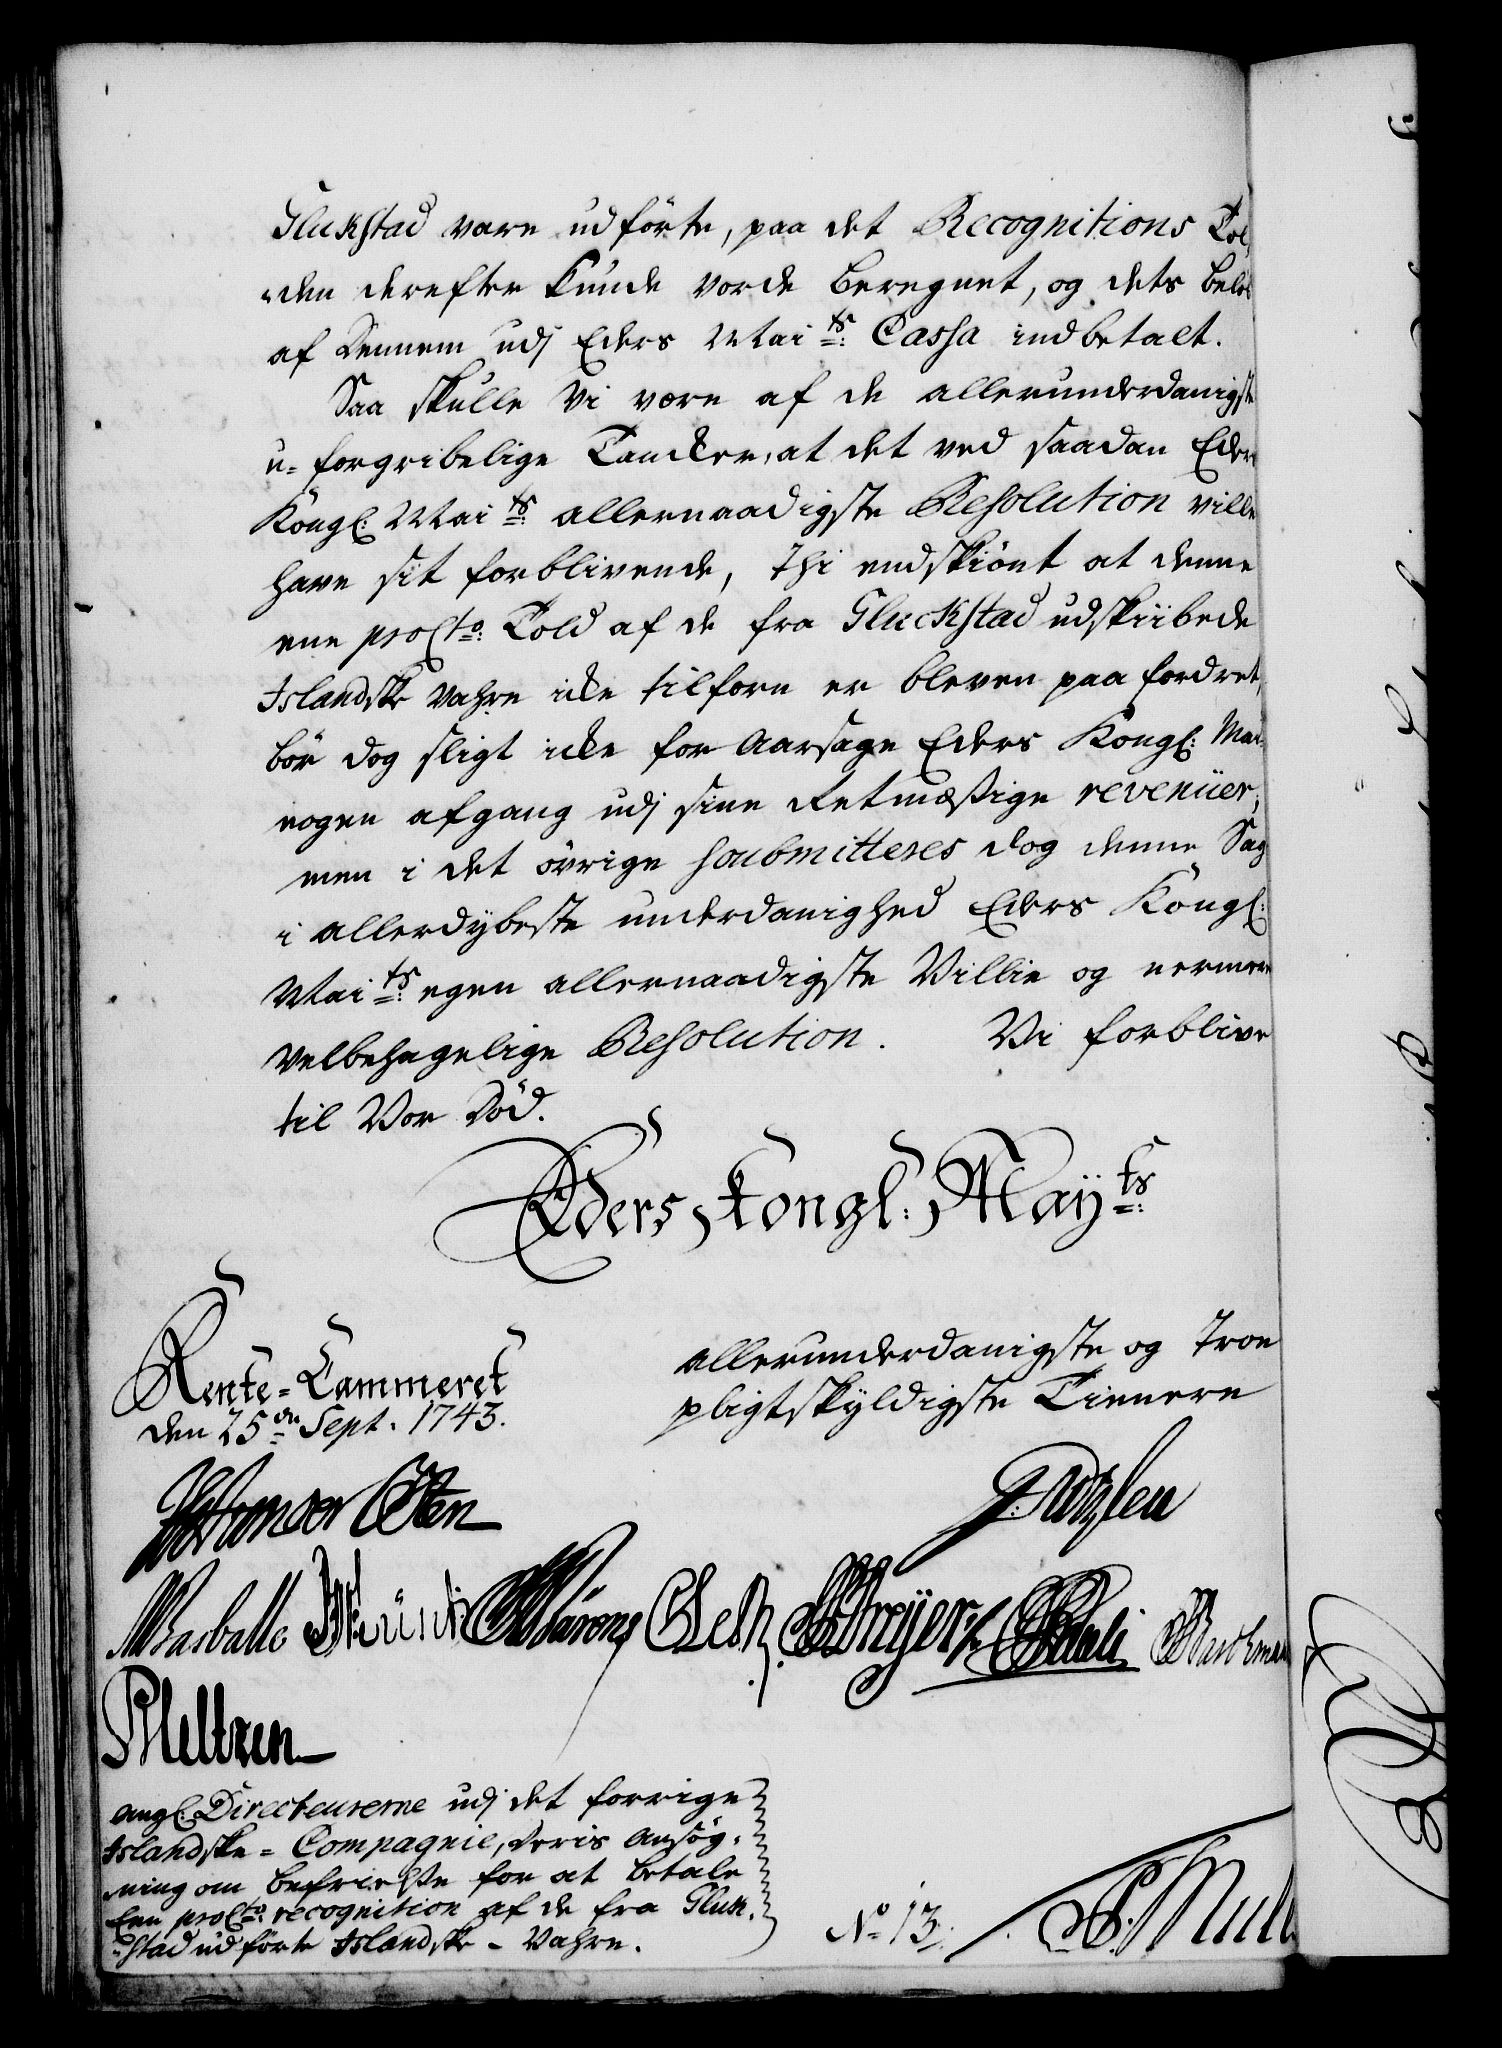 Glukstad vare udförte, paa det Recognitions Tol,
"den derefter kunde vorde beregnet, og dets belöb
af dennem udj Eders Mai ts: Cassa indbetalt.
Saa skulle Vi være af de allerunderdanigste
u-forgribelige Tancker, at det ved saadan Eders
Kongl: Mai ts: allernaadigste Resolution ville
have sit forblivende, Thi endskiönt at denne
ene proCto: Told af de fra Gluckstad udskiibede
Islandske Vahre icke tilforn er bleven paafordret,
bör dog sligt icke foraarsage Eders Kongl: Mai
nogen afgang udj sine Retmæssige revenüer,
men i det övrige soubmitteres dog denne Sag
i allerdybeste underdanighed Eders Kongl:
Mai ts: egen allernaadigste Villie og nermere
Velbehagelige Resolution. Vi forblive
til Vor Död.
Eders Kongl: Maÿ ts:
Rente-Cammeret
den 25 de Sept. 1743.
allerunderdanigste og Troe
pligtskyldigste Tienere
von der Osten
Meltzen
angl: Directeurerne udj det forrige
Islandske-Compagnie, deris Ansög-
ning om befrielse for at betale
Een proCto: recognition af de fra Gluk-
"stad udförte Islandske-Vahre.
No 13.